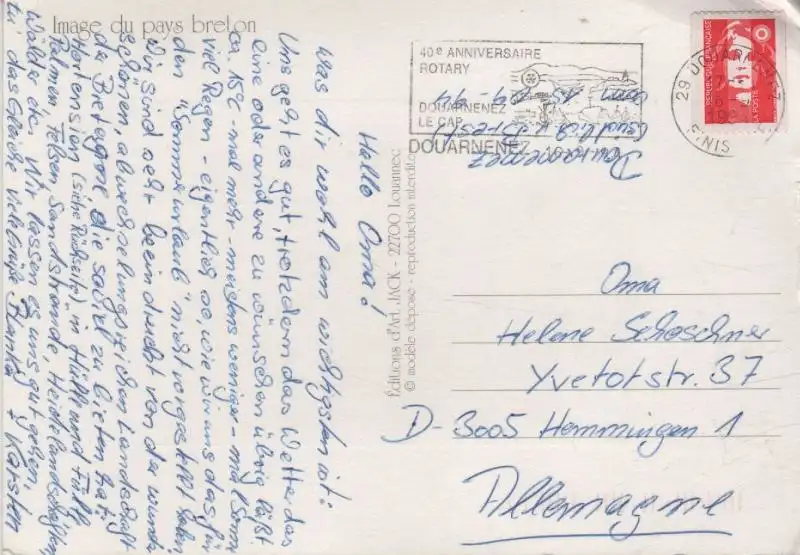 Image du pays breton
40e ANNIVERSAIRE
ROTARY
DOUARNENEZ
LE CAP
DOUARNENEZ
29 DOUARNENEZ
FINIS
REPUBLIQUE FRANÇAISE
LA POSTE
Douarnenez
(südlich v. Brest)
Hallo Oma!
was dir wohl am wichtigsten ist:
Uns geht es gut, trotzdem das Wetter das
eine oder andere zu wünschen übrig läßt.
ca. 15°C - mal mehr - meistens weniger - mal Sonne
viel Regen - eigentlich so, wie wir uns das für
den "Sommerurlaub" nicht vorgestellt haben
Wir sind sehr beeindruckt von der wunder
schönen, abwechslungsreichen Landschaft
die Bretagne die soviel zu bieten hat;
Hortensien (siehe Rückseite) in Hülle und Fülle
Palmen, Felsen, Sandstrände, Heidelandschaften
Wälder etc. Wir lassen es uns gut gehen
tu das Gleiche Viele Grüße + Karsten
Éditions d'Art JACK - 22700 Louannec
© modèle déposé - reproduction interdite
Oma
Helene Schoschner
Yvetotstr. 37
D-3005 Hemmingen 1
Allemagne